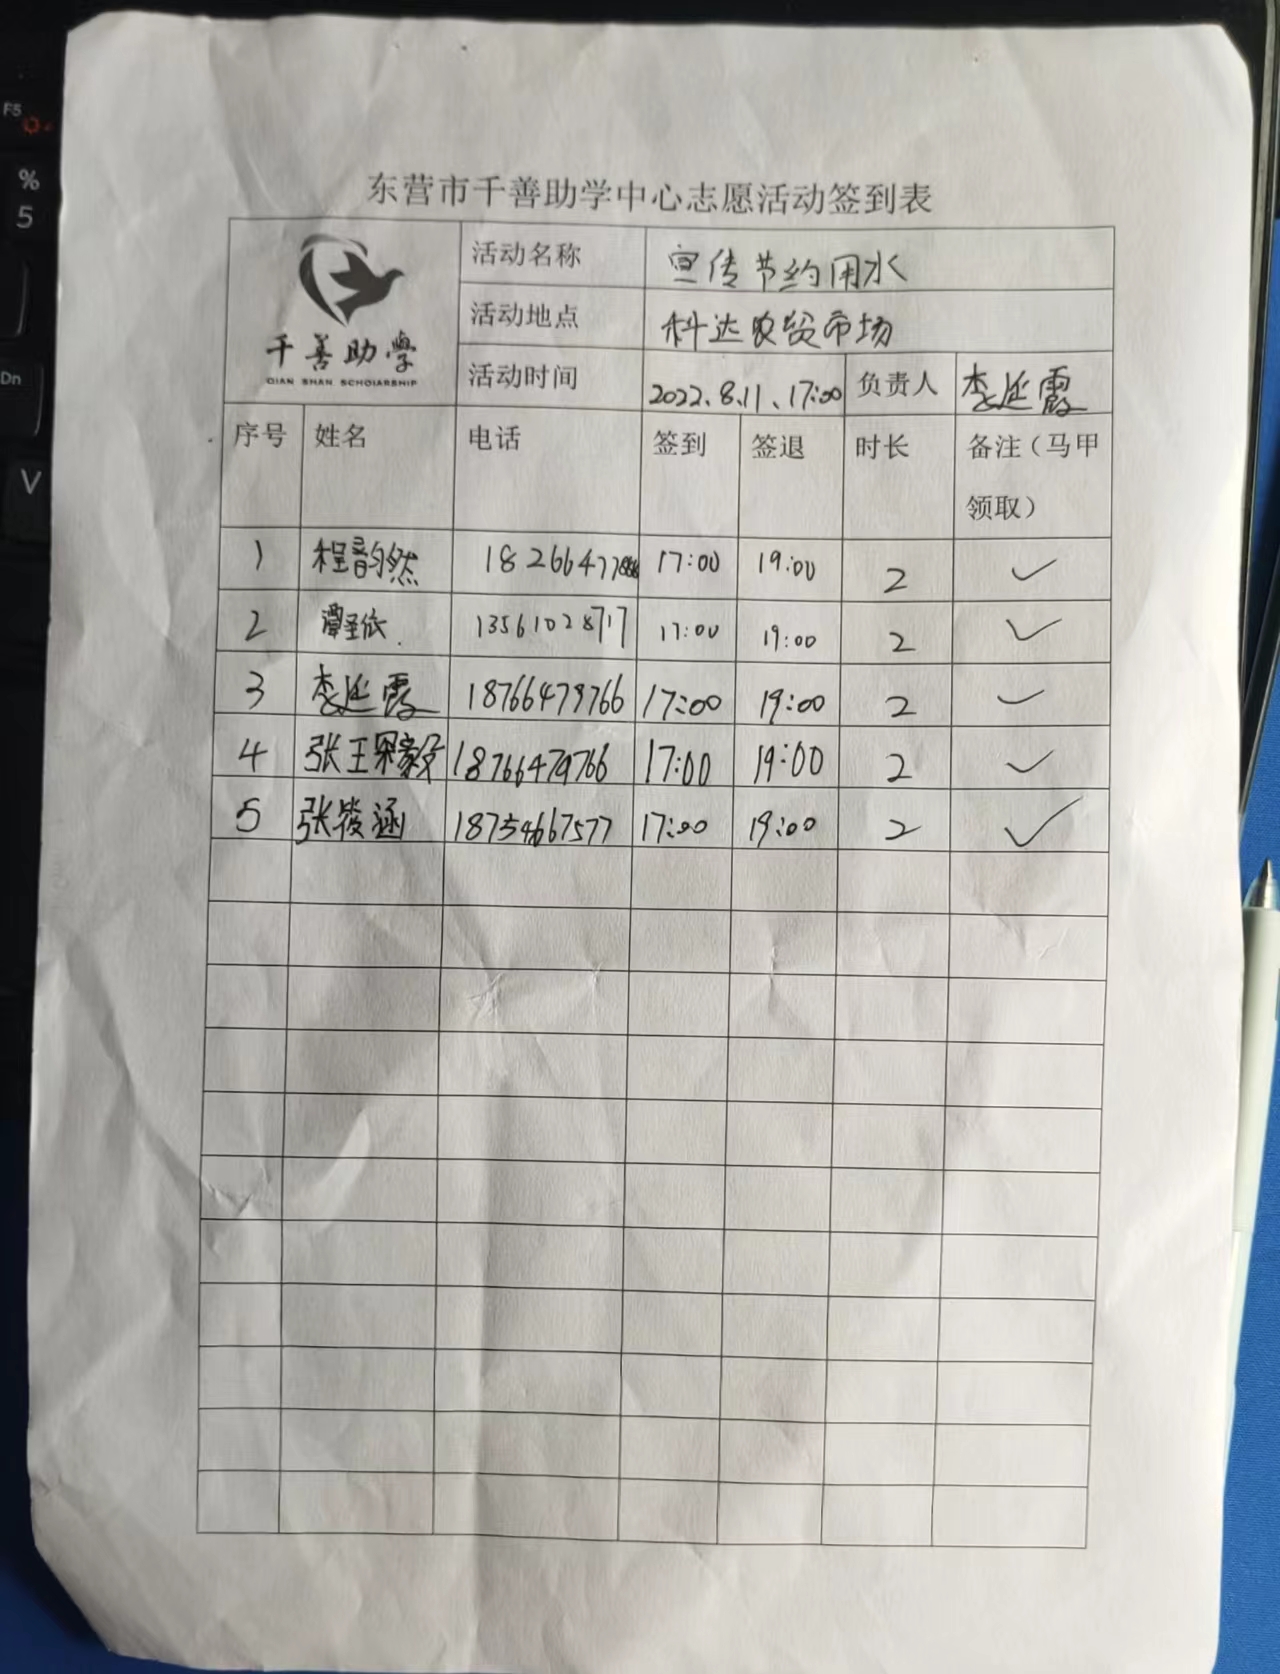 F5
%
5
Dn
V
东营市千善助学中心志愿活动签到表
千善助學
QIAN SHAN SCHOLARSHIP
活动名称 宣传节约用水
活动地点 科达农贸市场
活动时间 2022.8.11、17:00 负责人 李延霞
序号 姓名 电话 签到 签退 时长 备注（马甲
领取）
1 程韵然 17:00 19:00 2 ✓
2 13561028717 17:00 19:00 2 ✓
3 李延霞 18766479766 17:00 19:00 2 ✓
4 张王果毅 18766479766 17:00 19:00 2 ✓
5 张筱涵 18754667577 17:00 19:00 2 ✓